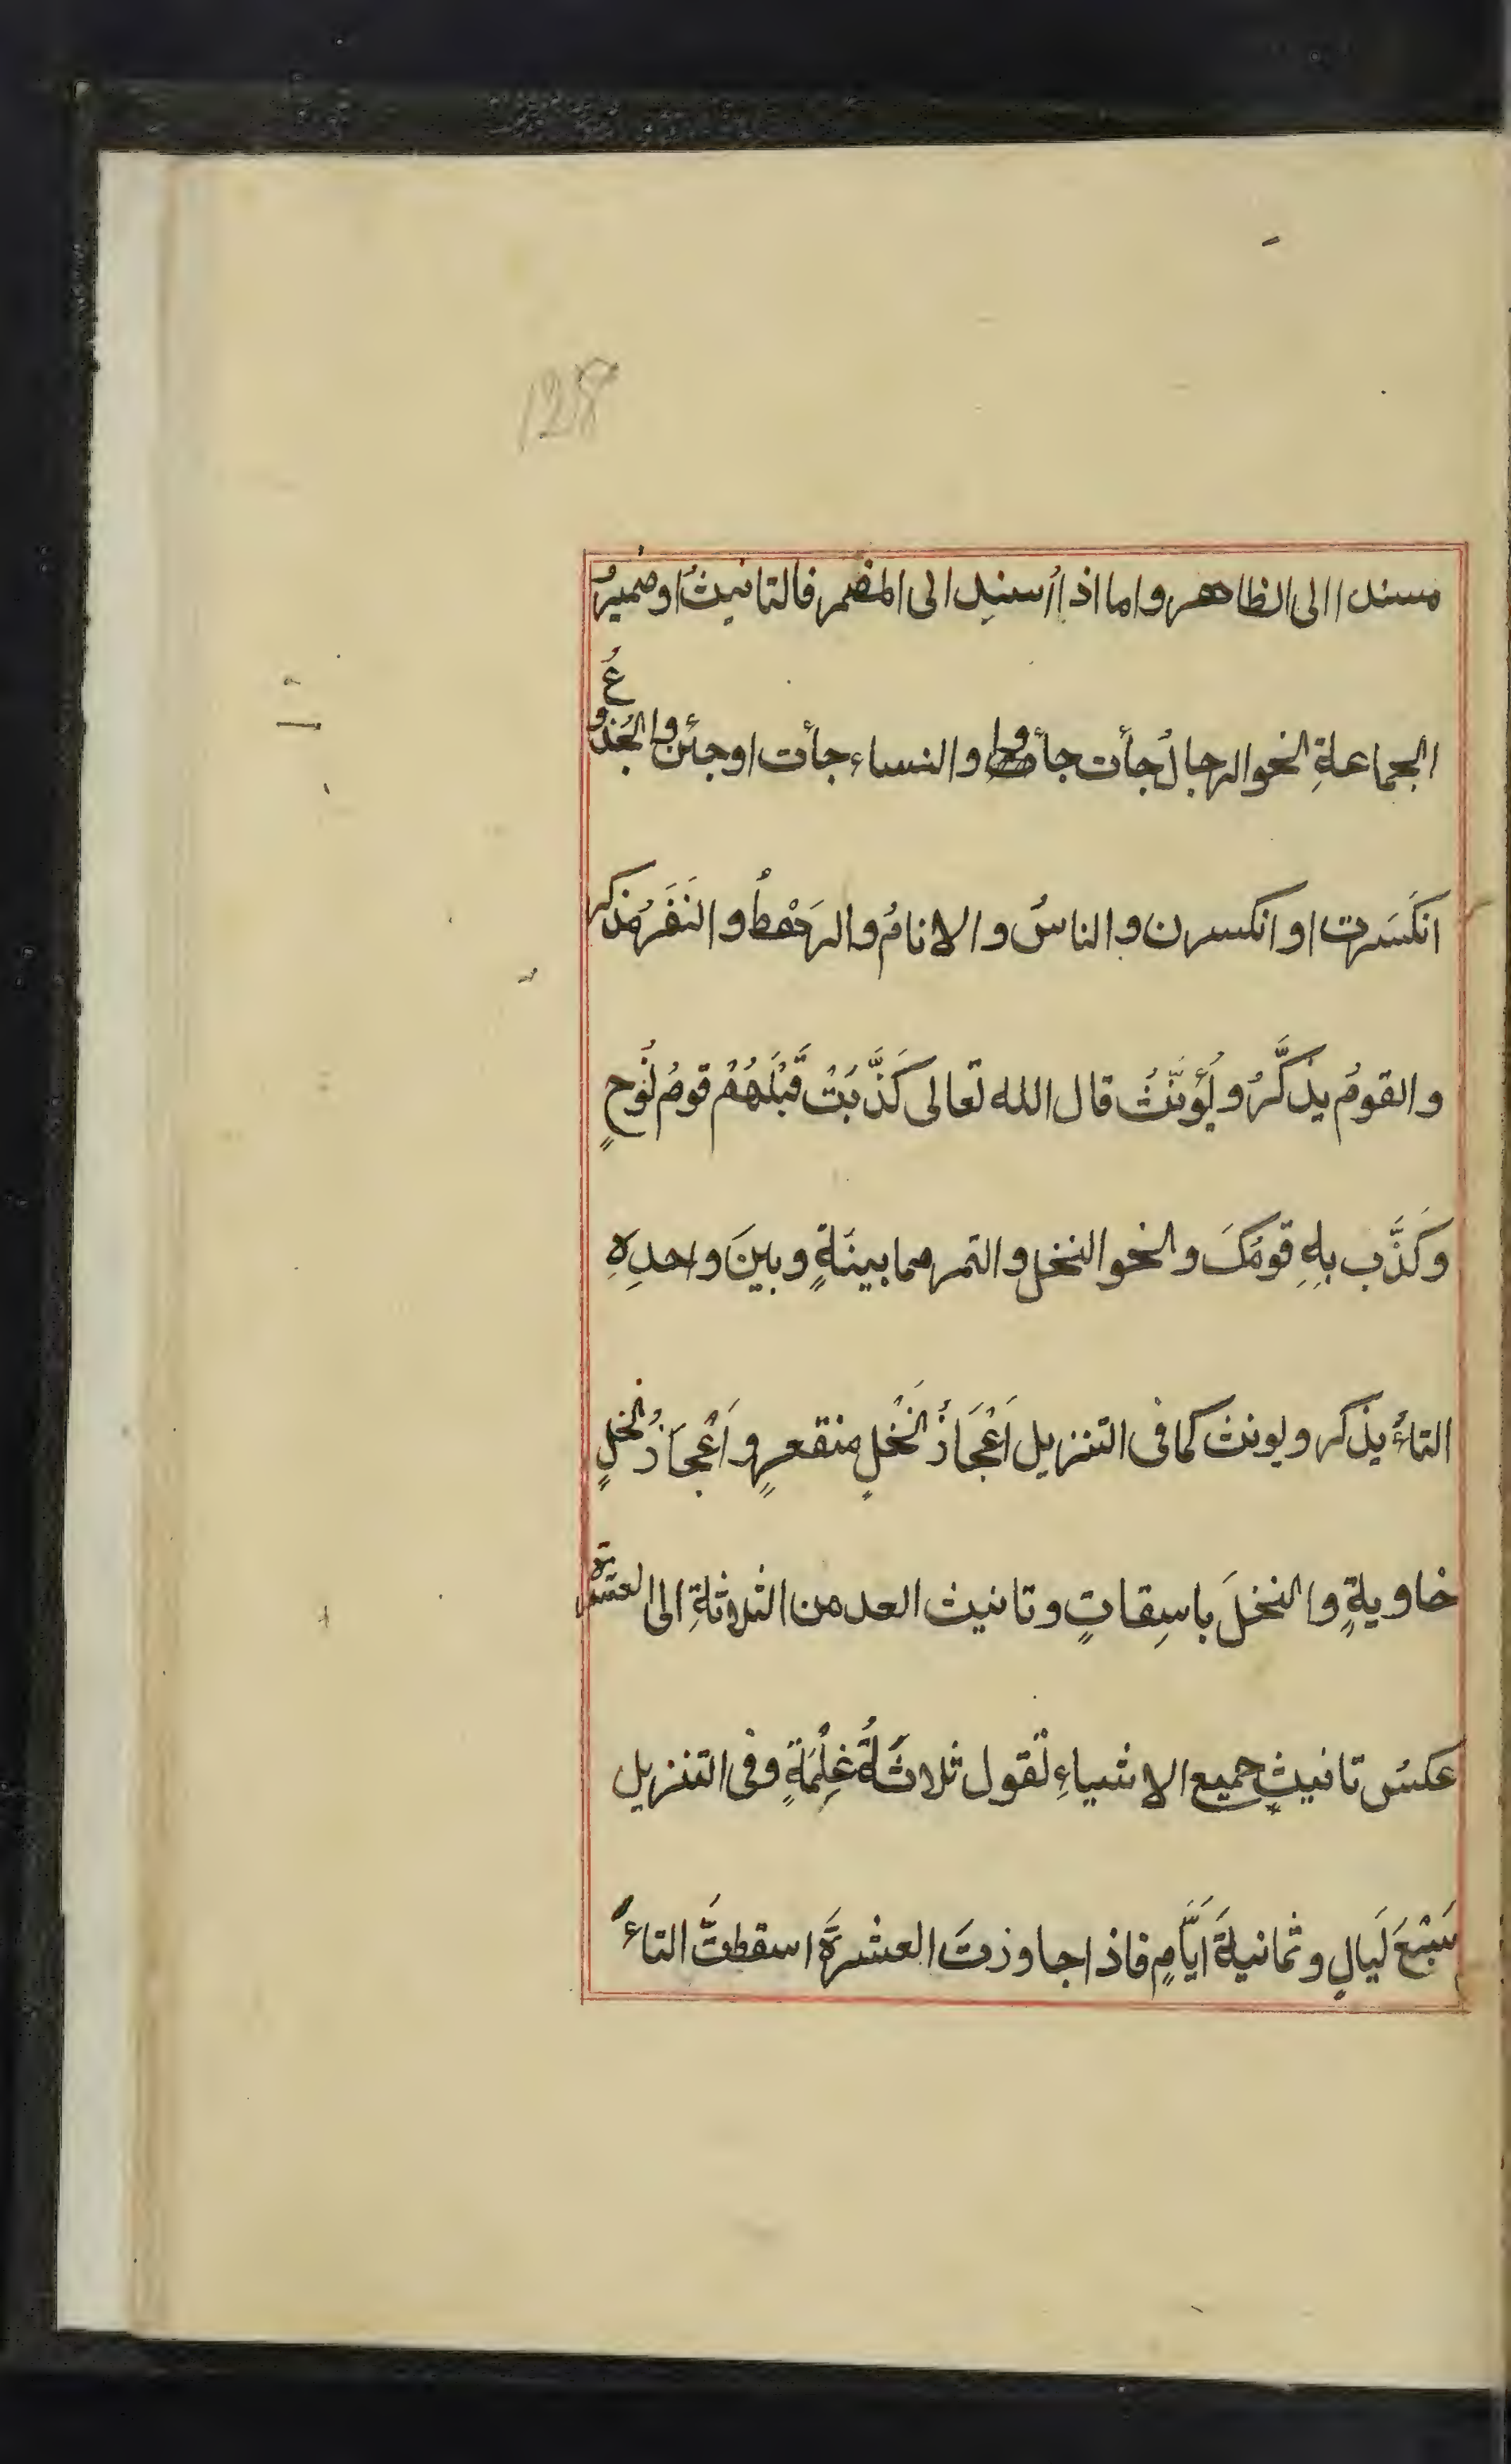 128
مسندا الى الظاهر واما اذا اُسنِد الى المضمر فالتانيثُ او ضميرُ
الجماعةِ نحو الرجالُ جأت جأوا والنساء جأت او جئن والجُذوعُ
انكَسَرت او انكسرن والناسُ والانامُ والرَهْطُ والنَفَرُ مذكر
والقومُ يذكَّرُ ويُؤنَّثُ قال الله تعالى كَذَّبَتْ قَبْلَهُمْ قومُ نُوحٍ
وَكَذَّب بِهِ قومُكَ ونحو النخل والتمر مما بينَهٍ وبينَ واحدِهِ
التاءُ يذكر ويونث كما فى التنزيل اَعْجَازُ نَخْلٍ منقعرٍ واَعْجَازُ نخلٍ
خاويةٍ والنخلَ باسِقاتٍ وتانيث العدمن الثلاثةِ الى العشرة
عكسُ تانيثِ جميع الاشياءِ تقول ثلاثَةُ غِلْمَةٍ وفى التنزيل
سَبْعَ لَيَالٍ وثمانيةَ اَيَّامٍ فاذا جاوزتَ العشرَةَ اسقطتَّ التاءَ